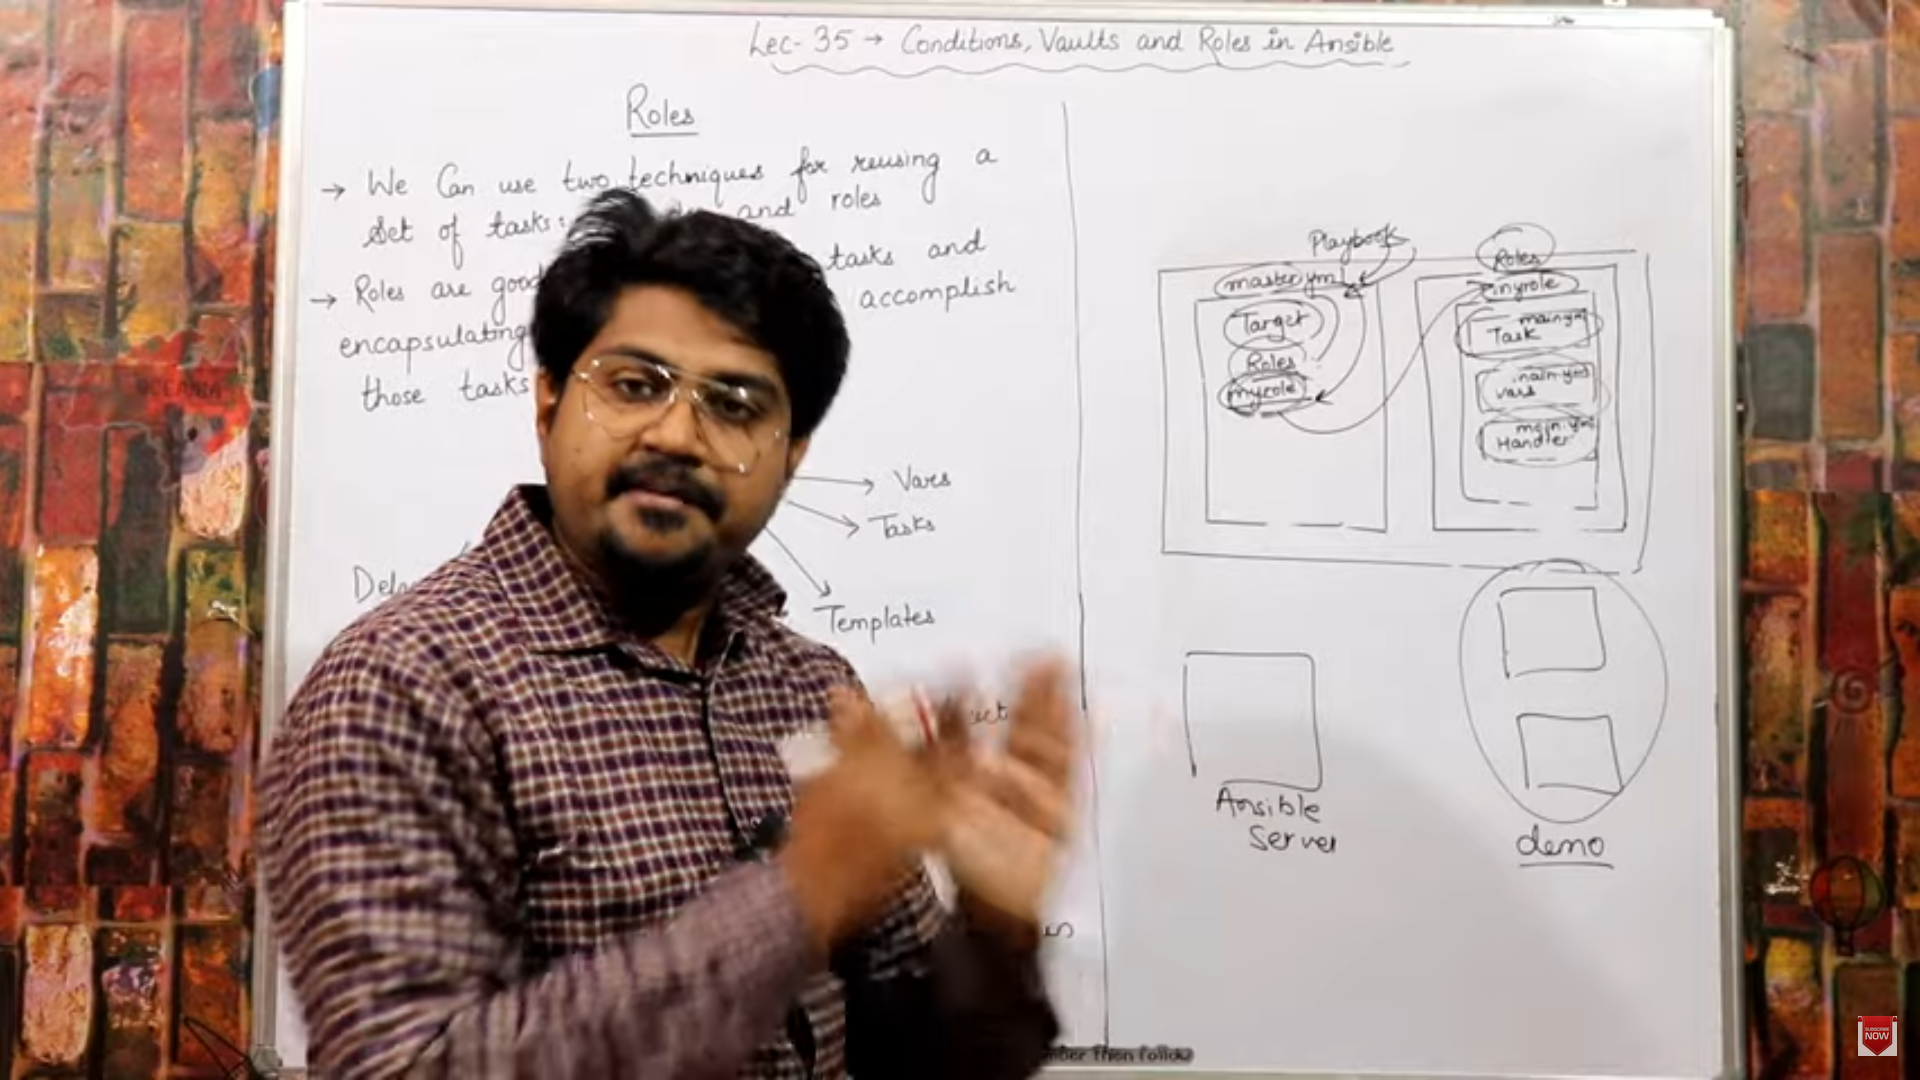 Lec-35 → Conditions, Vaults and Roles in Ansible
Roles
→ We Can use two techniques for reusing a
set of tasks: and roles
→ Roles are good tasks and
encapsulating accomplish
those tasks
Vares
Tasks
Templates
Playbook
master.yml
Target
Roles
myrole
Roles
myrole
main.yml
Task
main.yml
vars
main.yml
Handler
Ansible
Server
demo
then follow
SUBSCRIBE
NOW